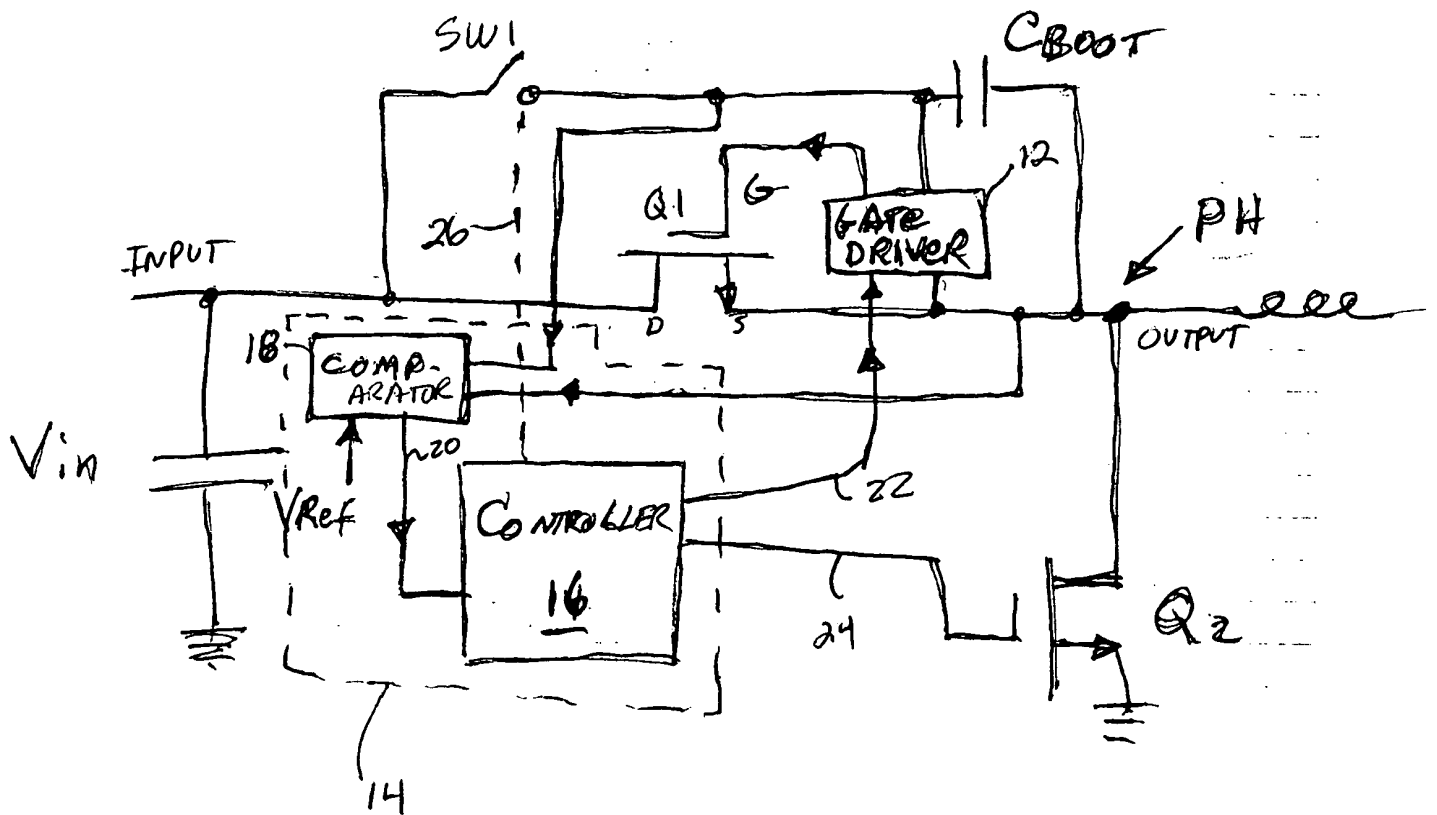 SW1
CBOOT
12
Q1
G
GATE
DRIVER
PH
26
INPUT
D
S
OUTPUT
18
COMP-
ARATOR
20
Vin
VRef
22
CONTROLLER
16
24
Q2
14